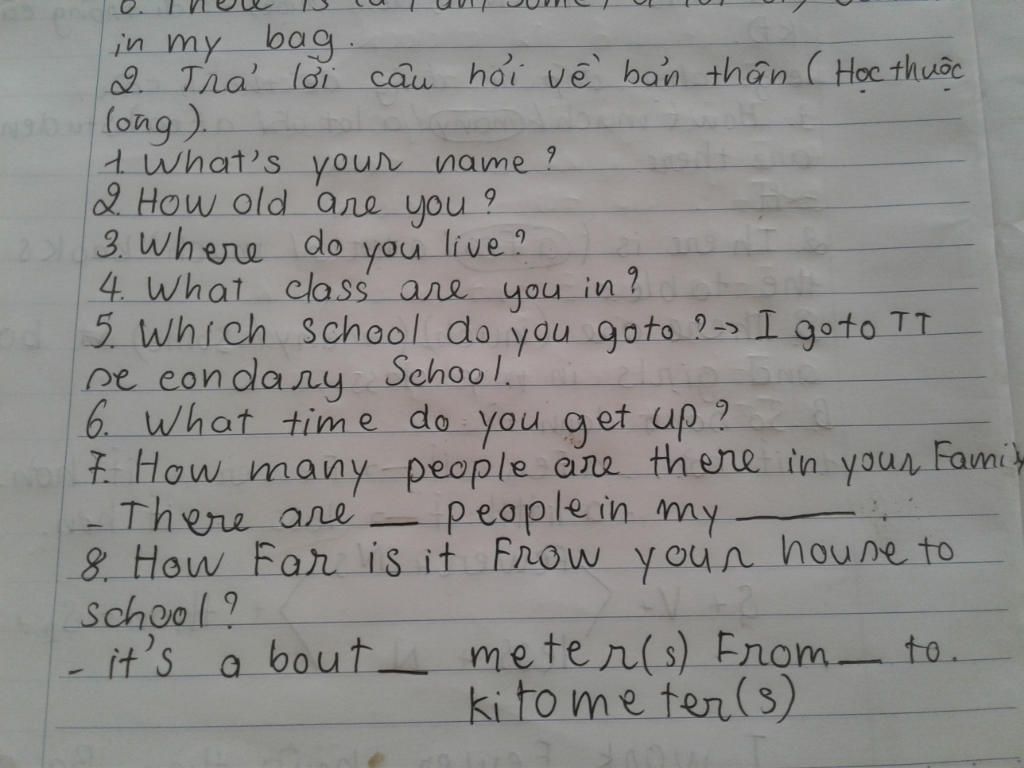 6. There is (a / an / some / a lot of)
in my bag.
2. Trả lời câu hỏi về bản thân (Học thuộc
lòng).
1. What's your name?
2. How old are you?
3. Where do you live?
4. What class are you in?
5. Which school do you goto? -> I goto TT
se condary School.
6. What time do you get up?
7. How many people are there in your Family
- There are __ people in my ____.
8. How Far is it Frow your house to
school?
- it's a bout __ meter(s) From __ to.
kitometer(s)